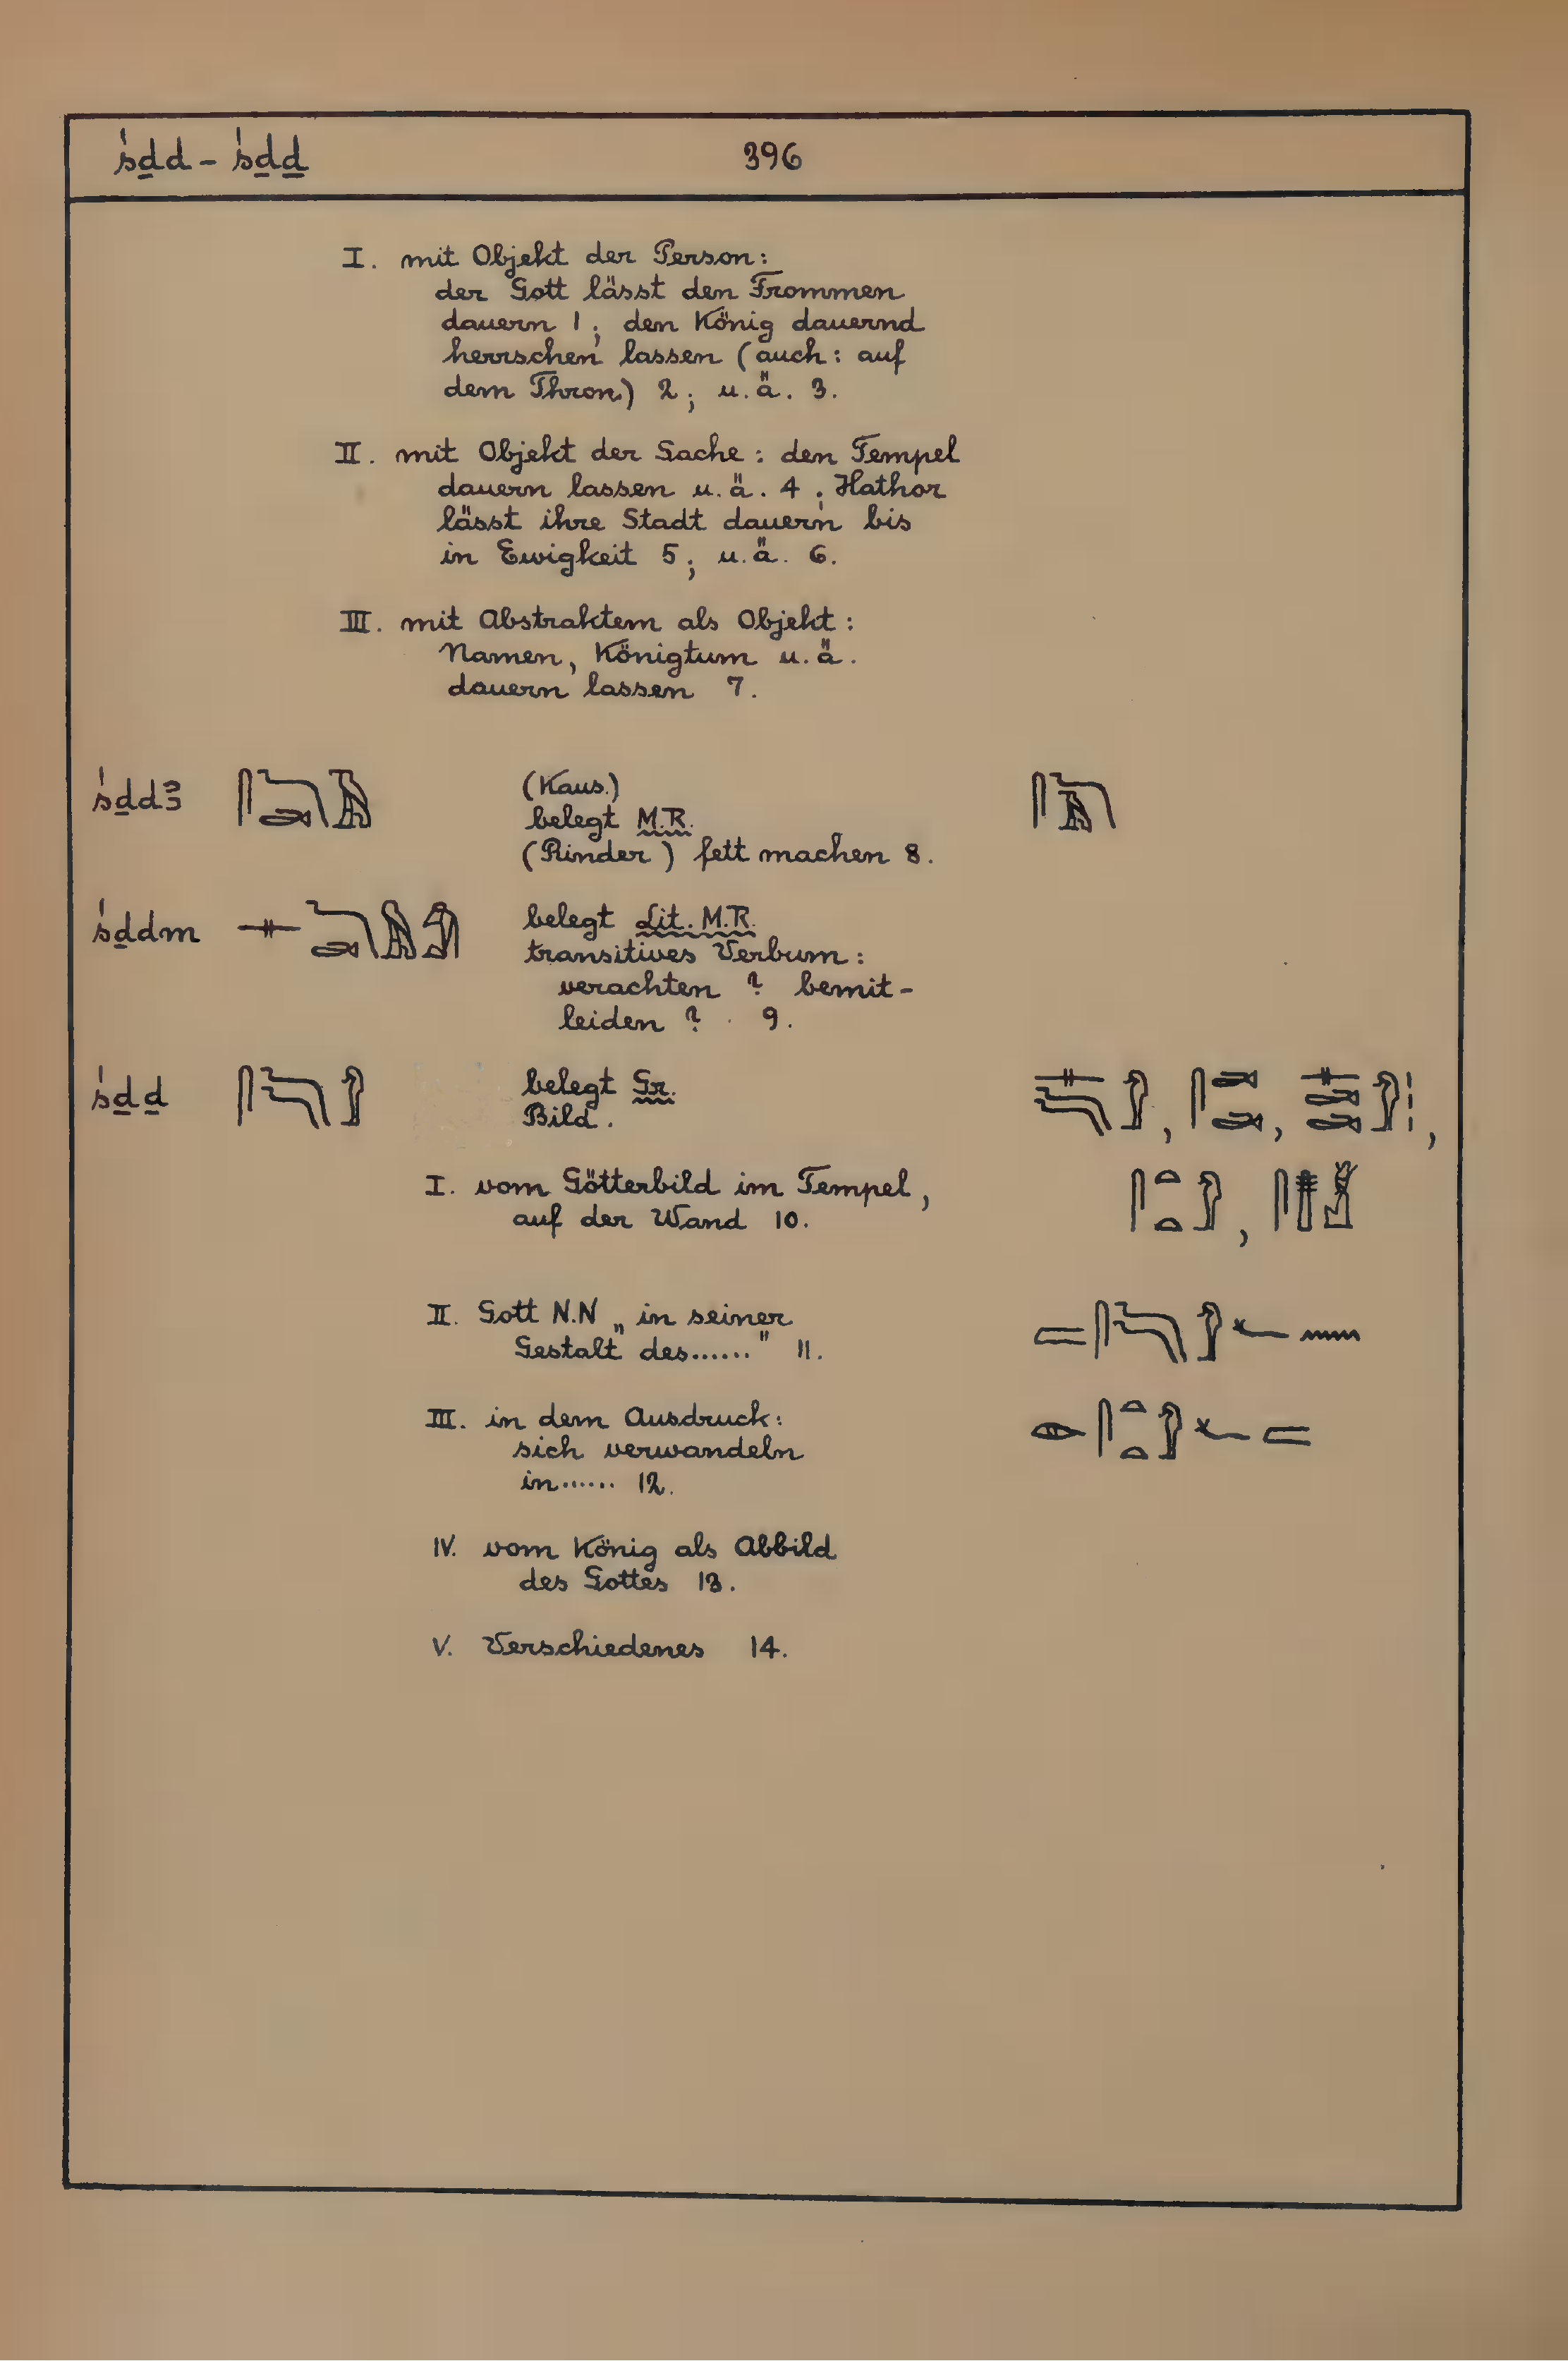 śḏd - śḏḏ 396
I. mit Objekt der Person:
der Gott lässt den Frommen
dauern 1; den König dauernd
herrschen lassen (auch: auf
dem Thron) 2; u.ä. 3.
II. mit Objekt der Sache: den Tempel
dauern lassen u.ä. 4; Hathor
lässt ihre Stadt dauern bis
in Ewigkeit 5; u.ä. 6.
III. mit Abstraktem als Objekt:
Namen, Königtum u.ä.
dauern lassen 7.
śḏdꜣ (Kaus.)
belegt M.R.
(Rinder) fett machen 8.
śḏdm belegt Lit. M.R.
transitives Verbum:
verachten? bemit-
leiden? 9.
śḏḏ belegt Gr.
Bild.
I. vom Götterbild im Tempel,
auf der Wand 10.
II. Gott N.N „in seiner
Gestalt des......" 11.
III. in dem Ausdruck:
sich verwandeln
in...... 12.
IV. vom König als Abbild
des Gottes 13.
V. Verschiedenes 14.